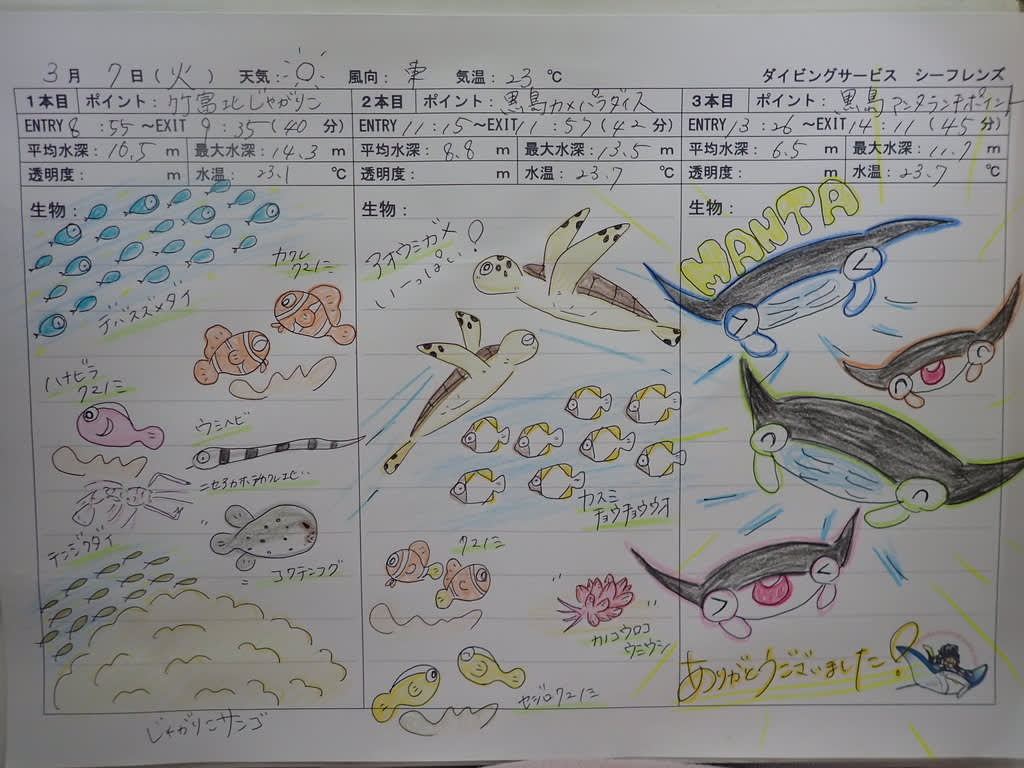 3月 7日(火) 天気: 風向: 東 気温: 23 ℃ ダイビングサービス シーフレンズ
1本目 ポイント: 竹富北じゃがりこ 2本目 ポイント: 黒島カメパラダイス 3本目 ポイント: 黒島マンタランチポイント
ENTRY 8:55~EXIT 9:35(40分) ENTRY 11:15~EXIT 11:57(42分) ENTRY 13:26~EXIT 14:11(45分)
平均水深: 10.5 m 最大水深: 14.3 m 平均水深: 8.8 m 最大水深: 13.5 m 平均水深: 6.5 m 最大水深: 11.7 m
透明度: m 水温: 23.1 ℃ 透明度: m 水温: 23.7 ℃ 透明度: m 水温: 23.7 ℃
生物:
デバスズメダイ
カクレ
クマノミ
ハナビラ
クマノミ
ウミヘビ
テンジクダイ
コクテンフグ
じゃがりこサンゴ
生物:
アオウミガメ
いーっぱい!
カスミ
チョウチョウウオ
クマノミ
カノコウロコ
ウミウシ
セジロクマノミ
生物:
MANTA
ありがとうございました!